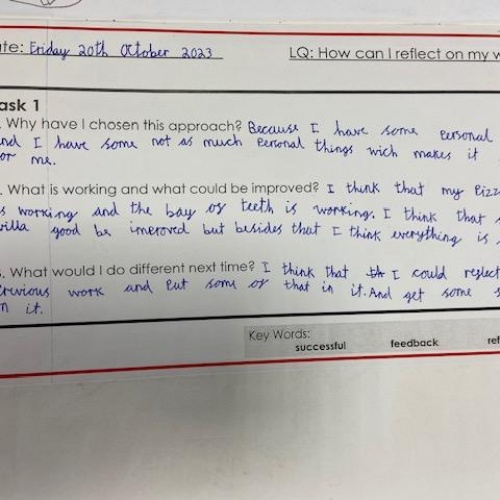 ate: Friday 20th October 2023 LQ: How can I reflect on my w
ask 1
. Why have I chosen this approach? Because I have some Personal
and I have some not as much Personal things wich makes it
or me.
. What is working and what could be improved? I think that my Pizz
is working and the bay of teeth is working. I think that
villa good be imeroved but besides that I think everything is
. What would I do different next time? I think that I could reflect
Previous work and Put some of that in it. And get some
in it.
Key Words:
successful feedback ref